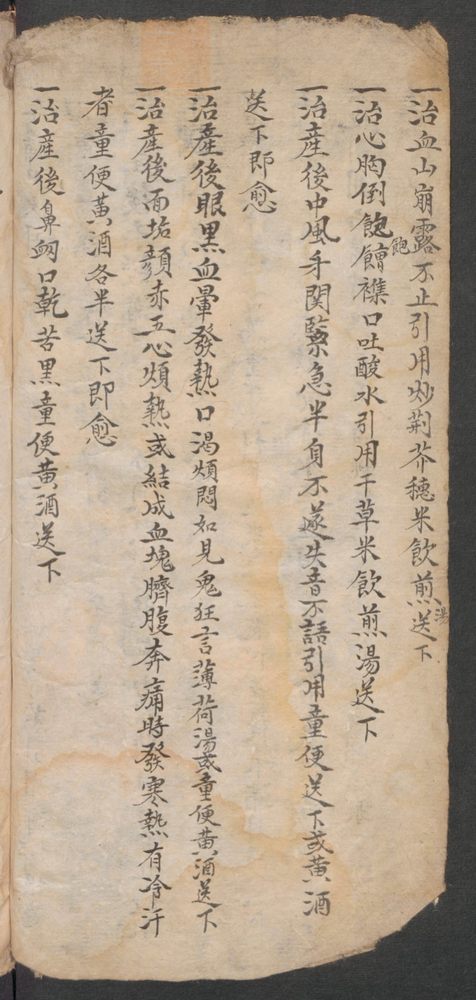 一治血山崩露不止引用炒荆芥穗米飲煎湯送下
一治心胸倒飽飽饍襍口吐酸水引用干草米飲煎湯送下
一治產後中風牙関緊急半身不遂失音不語引用童便送下或黄酒
送下即愈
一治產後眼黒血暈發熱口渴煩悶如見鬼狂言薄荷湯或童便黄酒送下
一治產後面垢顔赤五心煩熱或結成血塊臍腹奔痛時發寒熱有冷汗
者童便黄酒各半送下即愈
一治產後鼻衂口乾苦黒童便黄酒送下